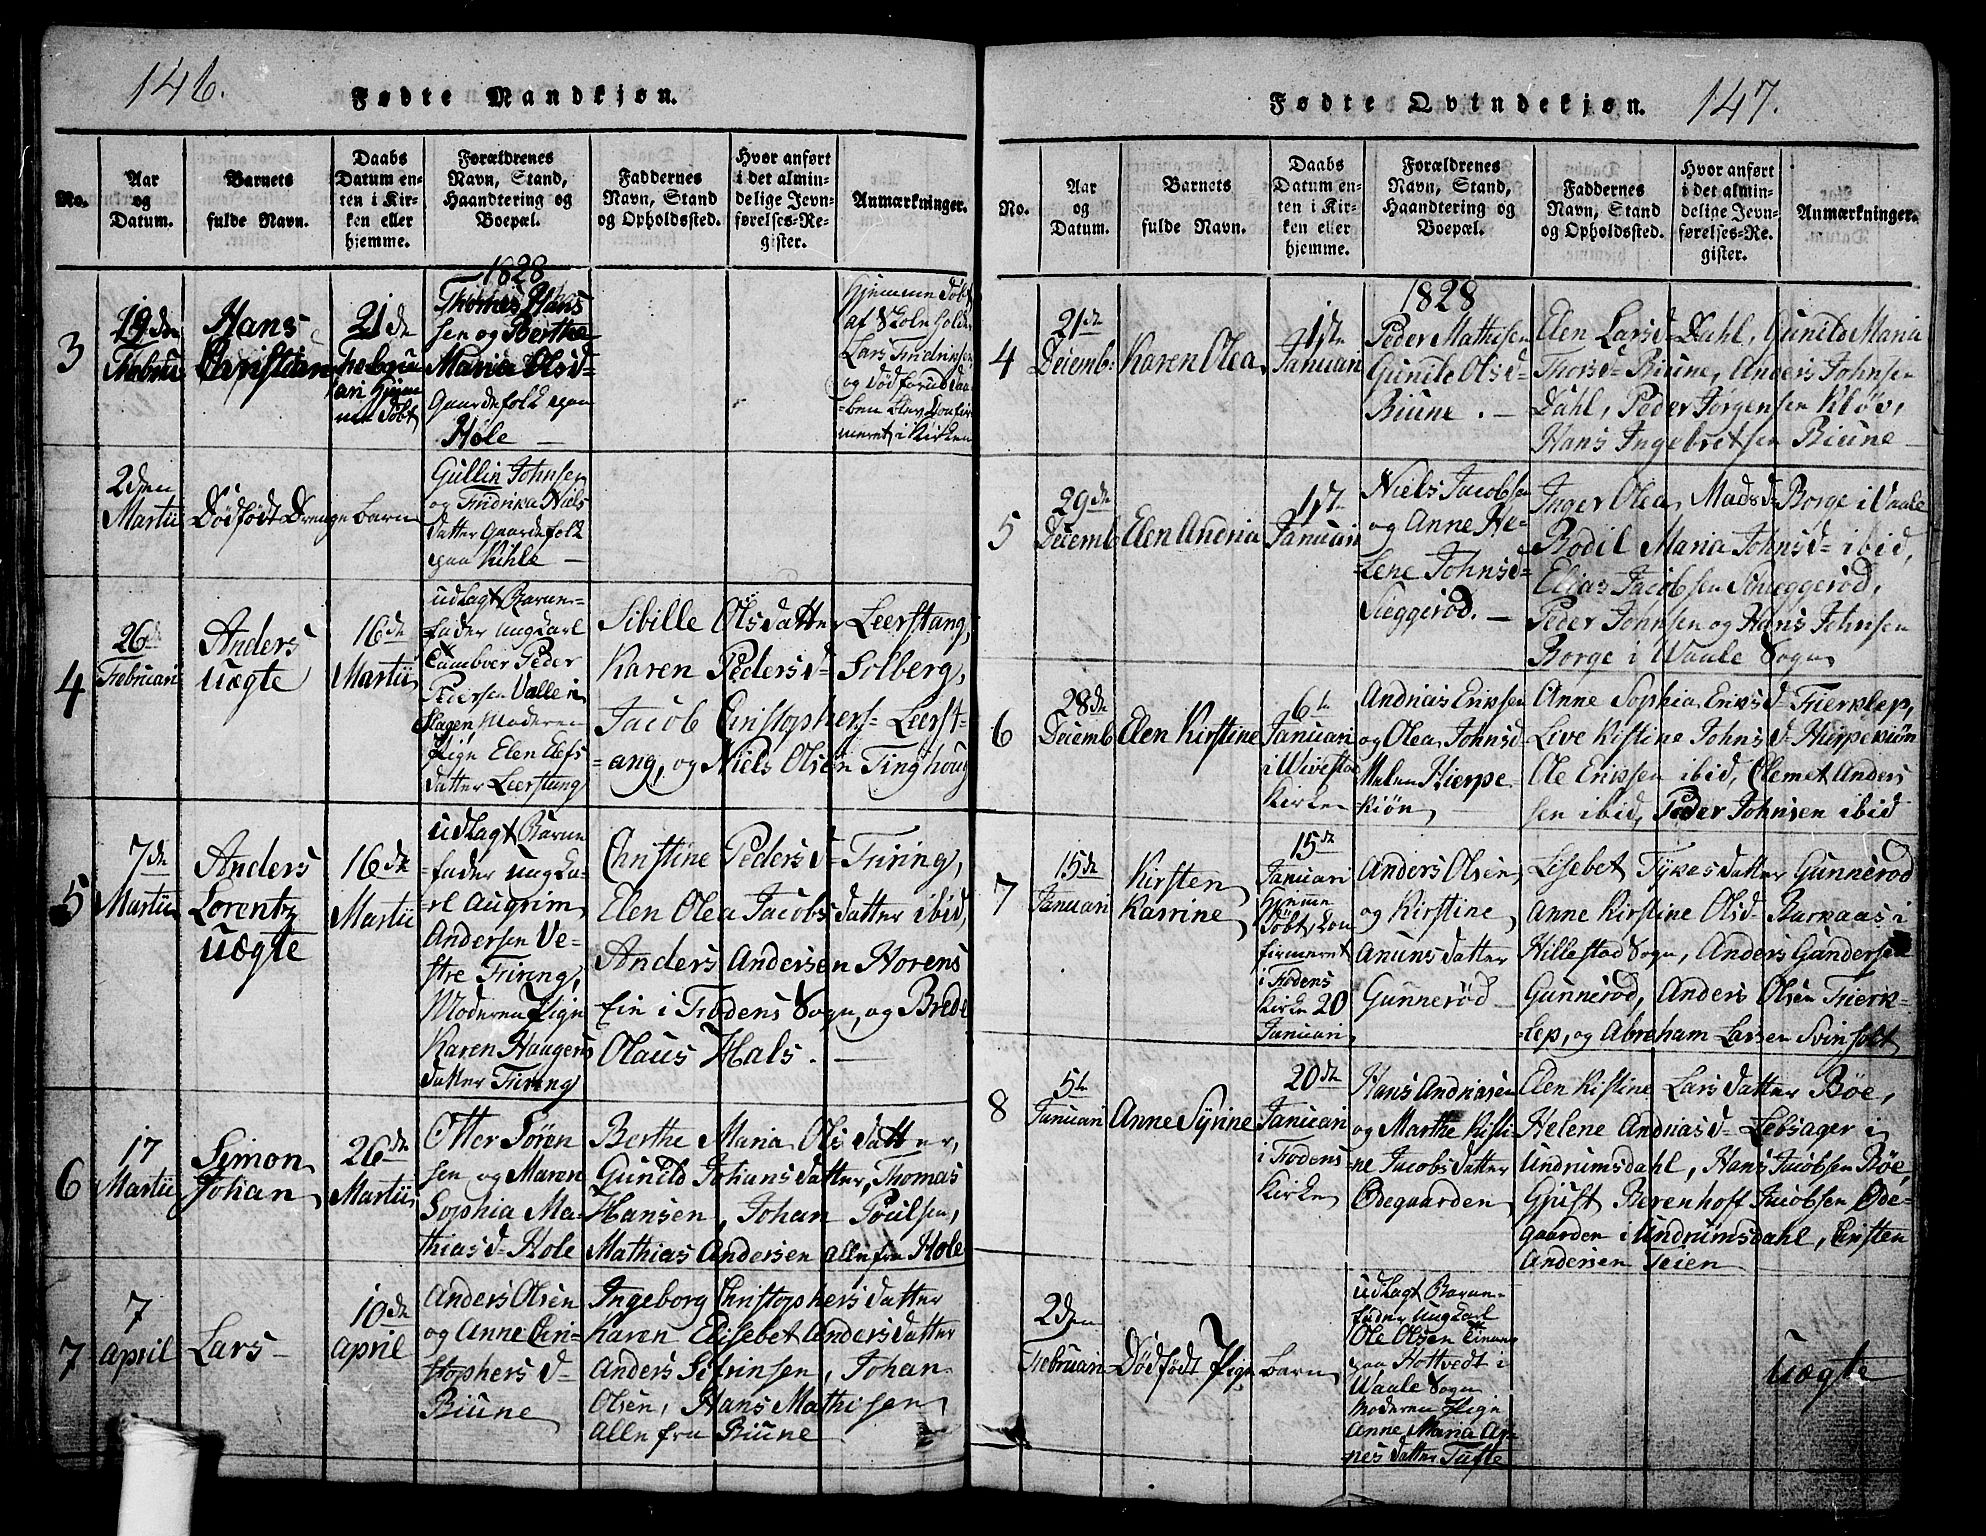 146.
Fødte Mandkjøn.
No.
Aar
og
Datum.
Barnets
fulde Navn.
Daabs
Datum en-
ten i Kir-
ken eller
hjemme.
Forældrenes
Navn, Stand,
Haandtering og
Boepæl.
Faddernes
Navn, Stand
og Opholdssted.
Hvor anført
i det almin-
delige Jevn-
førelses-Re-
gister.
Anmærkninger.
1828
3
19den
Februari
Hans
Christian
21de
Februari
ari hjem-
me døbt
Thomes Hans
sen og Berthe
Maria Olsd=
Gaardefolk paa
Hole —
hjemme døbt
af Skoleholder
Lars Fredriksen
og Død forend Daa
=ben blev Confir
meret i Kirken
2den
Martii
Dødfødt Drenge barn
Gullin Johnsen
og Fredrika Niels
datter Gaardefolk
paa Kihle —
4
26de
Februari
Anders
uægte
16de
Martii
udlagt Barne-
fader ungkarl
Tambour Peder
Pedersen Valle i
Slagen, Moderen
Pige Elen Elefs
datter Leerstang
Sibille Olsdatter Leerstang,
Karen Pedersd= Solberg,
Jacob Cristophers= Leerst=
=ang, og Niels Olsen Tinghoug
5
7de
Martii
Anders
Lorentz
uægte
16de
Martii
udlagt Barne
=fader ungka
rl Augrim
Andersen Ve-
stre Firing,
Moderen Pige
Karen Haagens
datter Firing
Christine Pedersd= Firing,
Elen Olea Jacobsdatter ibid,
Anders Andersen Horens
Ein i Fodens Sogn, og Brede
Olaus Hals. —
6
17
Martii
Simon
Johan
26de
Martii
Otter Sören
sen og Maren
Sophia Ma-
thiasd= Hole
Berthe Maria Olsdatter,
Gunild Johansdatter, Thomas
Hansen, Johan Poulsen,
Mathias Andersen alle fra Hole
7
7
April
Lars
10de
april
Anders Olsen
og Anne Cri-
stophersd=
Biune
Ingeborg Christophersdatter
Karen Elisebet Andersdatter
Anders Sifrinsen, Johan
Olsen, Hans Mathisen
alle fra Biune
147.
Fødte Qvindekjøn.
No.
Aar
og
Datum.
Barnets
fulde Navn.
Daabs
Datum en-
ten i Kir-
ken eller
hjemme.
Forældrenes
Navn, Stand,
Haandtering og
Boepæl.
Faddernes
Navn, Stand
og Opholdssted.
Hvor anført
i det almin-
delige Jevn-
førelses-Re-
gister.
Anmærkninger.
1828
4
21de
Decemb:
Karen Olea
1ste
Januari
Peder Mathisen
Gunild Olsd=
Biune. —
Elen Larsd= Dahl, Gunild Maria
Thorsd= Biune, Anders Johnsen
Dahl, Peder Jørgensen Kløv,
Hans Ingebretsen Biune
5
29de
Decemb
Elen Andria
1ste
Januari
Niels Jacobsen
og Anne He-
lene Johnsd=
Sieggerød. —
Inger Olea Madsd= Borge i Vaale
Bodil Maria Johnsd= ibid,
Elias Jacobsen Schieggerød,
Peder Johnsen og Hans Johnsen
Borge i Waale Sogn
6
28de
Decemb
Elen Kirstine
6te
Januari
i Wivestad
kirken
Andrias Eriksen
og Olea Johnsd=
Malen Hierpe-
kiøn
Anne Sophia Eriksd= Fierklep,
Live Kistine Johnsd= Hierpekiøn
Ole Eriksen ibid, Clemet Anders
sen ibid, Peder Johnsen ibid
7
15de
Januari
Kirsten
Katrine
15de
Januari
hjemme
døbt, Con
firmeret
i Fodens
kirke 20
Januari
Anders Olsen
og Kirstine
Anunsdatter
Gunnerød
Lisebet Tykesdatter Gunnerød
Anne Kirstine Olsd= Barkaas i
Hillestad Sogn, Anders Gundersen
Gunnerød, Anders Olsen Fierk-
lep, og Abraham Larsen Svinholt
8
5te
Januari
Anne Syrine
20de
Januari
i Fodens
kirke
Hans Andriasen
og Marthe Kisti
ne Jacobsdatter
Ødegaarden
Elen Kistine Larsdatter Bøe,
Helene Andriasd= Lebsager i
Undrumsdahl, Hans Jacobsen Bøe,
Gjust Berenhoff Jacobsen Øde-
gaarden i Undrumsdahl, Cristen
Andersen Teien
2den
Februari
Dødfødt Pige barn
udlagt Barne-
fader ungkarl
Ole Olsen
paa Hottvedt i
Waale Sogn
Moderen Pige
Anne Maria An-
nesdatter Tufte
uægte